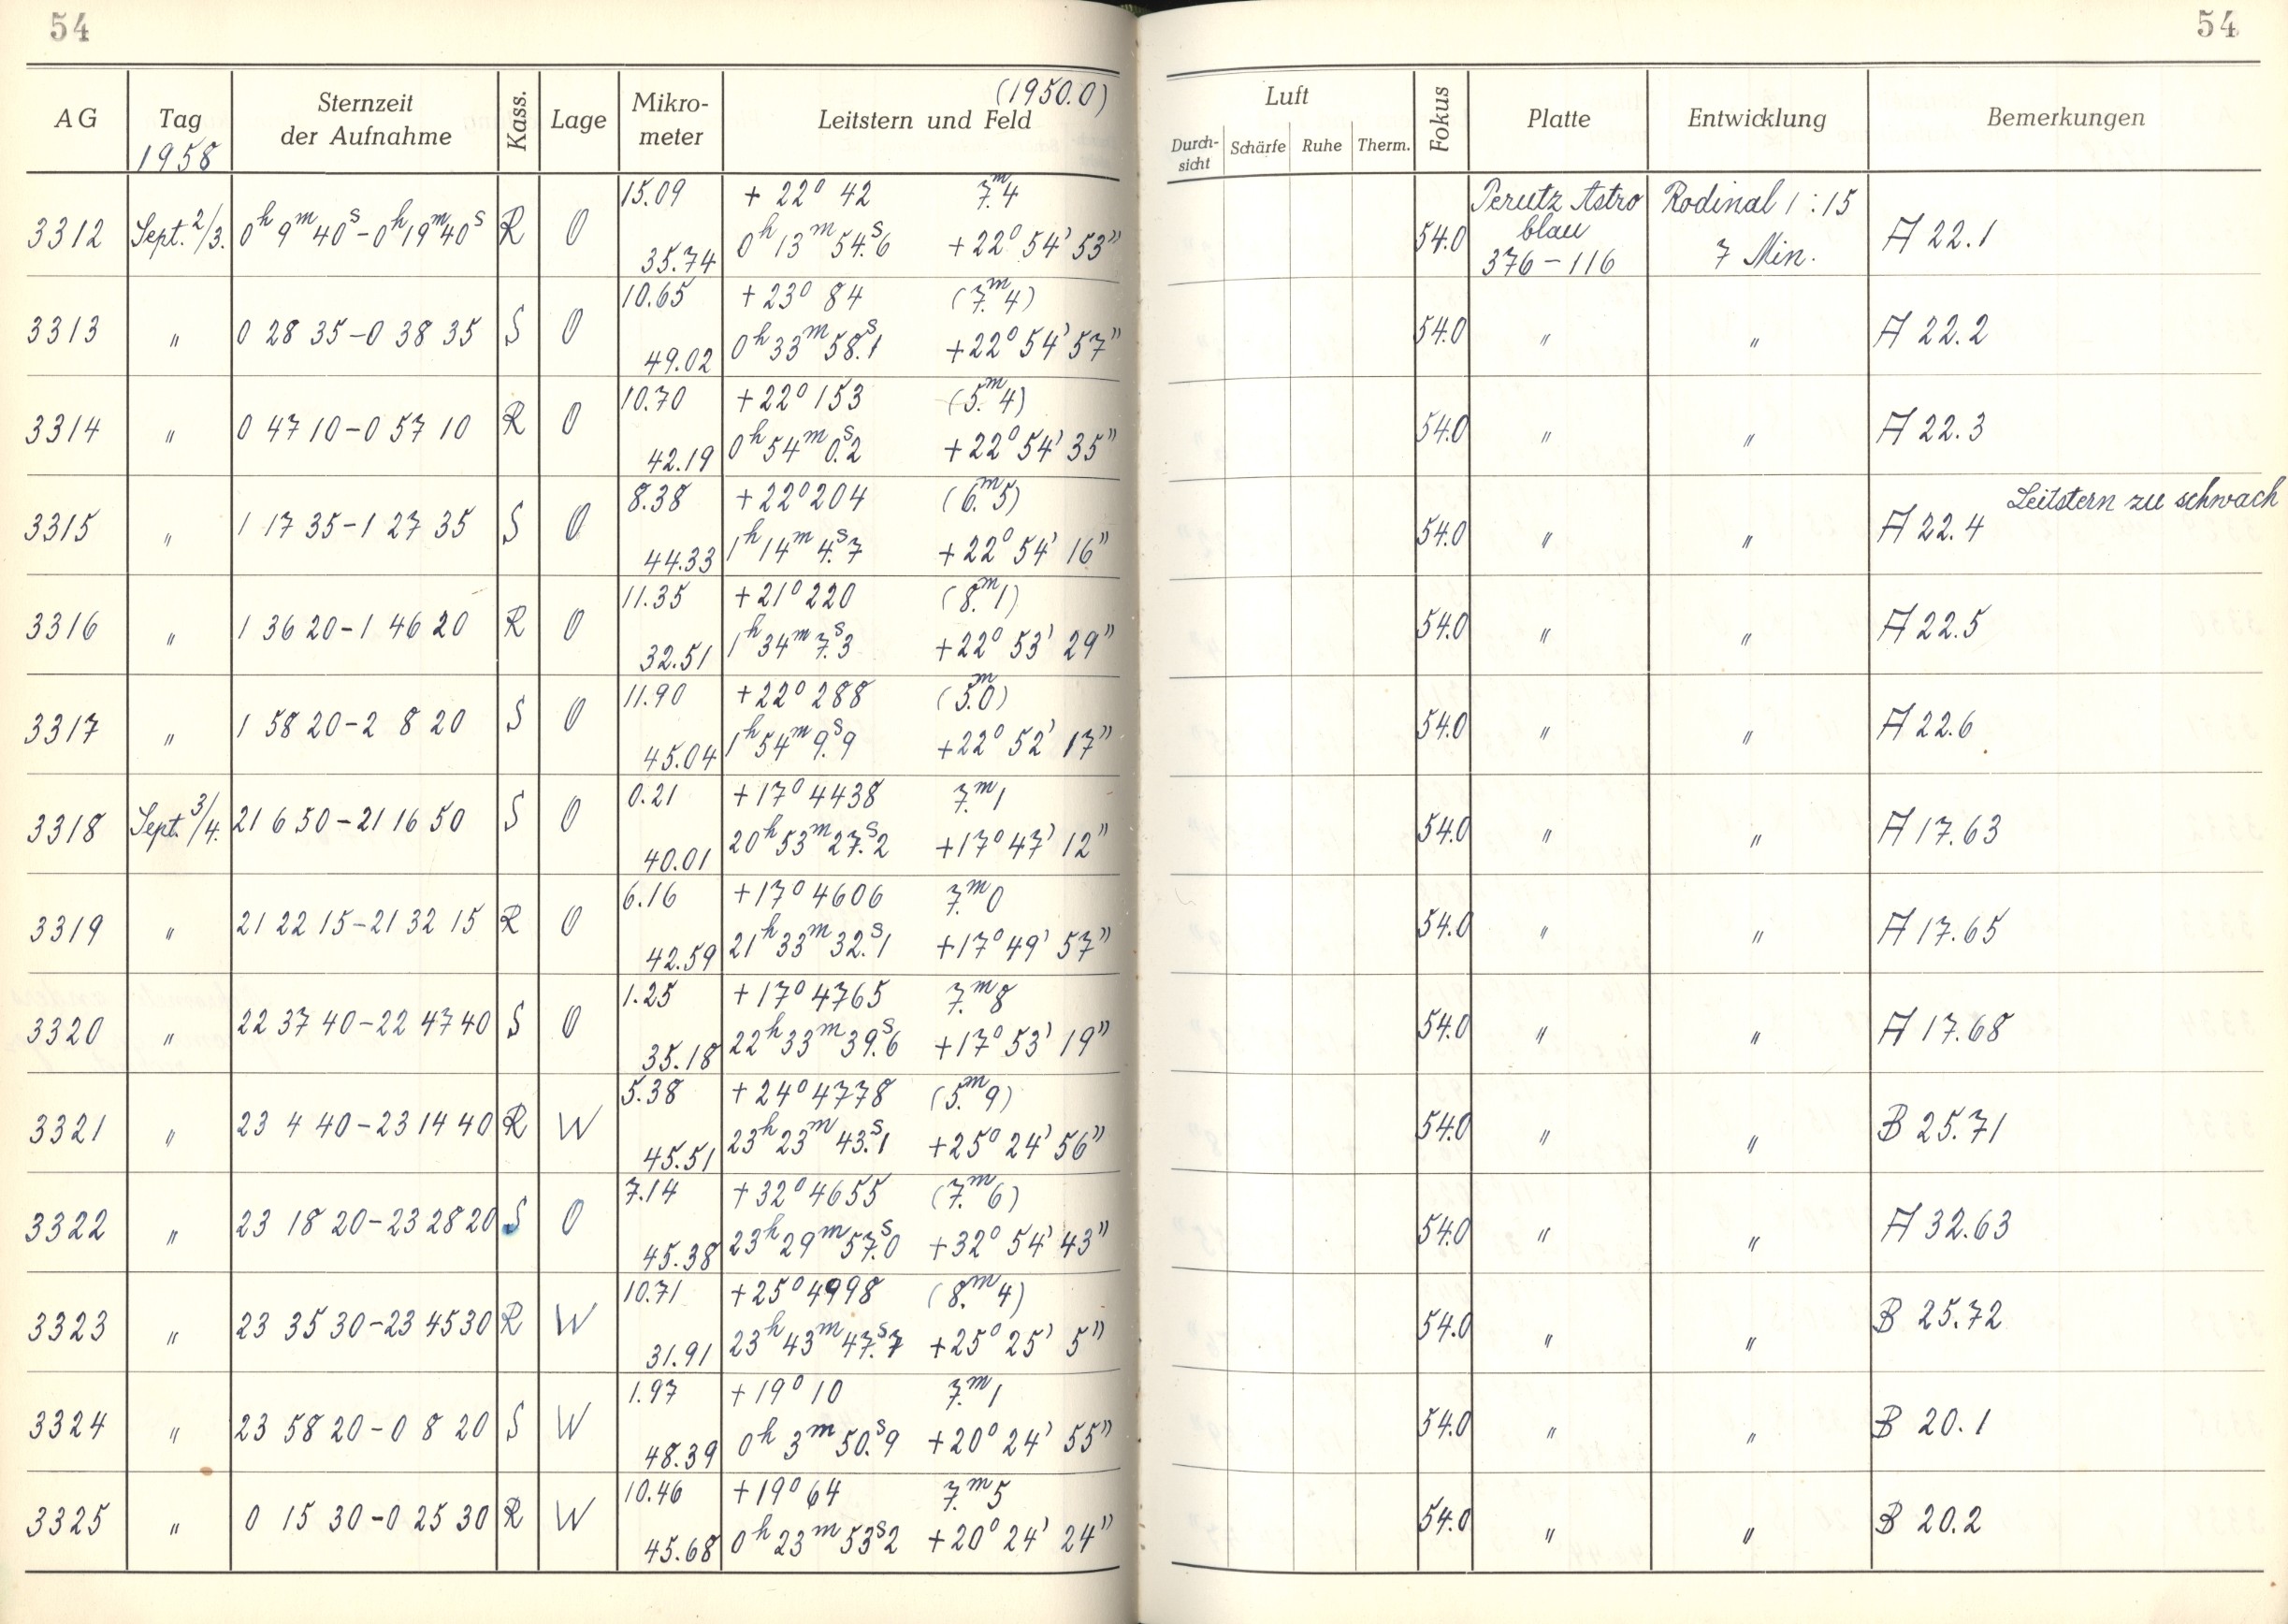 54
54
AG
Tag
1958
Sternzeit
der Aufnahme
Kass.
Lage
Mikro-
meter
(1950.0)
Leitstern und Feld
Luft
Durch-
sicht
Schärfe
Ruhe
Therm.
Fokus
Platte
Entwicklung
Bemerkungen
3312 Sept. 2/3. 0h 9m 40s – 0h 19m 40s R O 15.09 + 22° 42 7.m4 54.0 Perutz Astro Rodinal 1:15 A 22.1
35.74 0h 13m 54.s6 +22° 54' 53" blau 7 Min.
376 – 116
3313 " 0 28 35 – 0 38 35 S O 10.65 + 23° 84 (7.m4) 54.0 " " A 22.2
49.02 0h 33m 58.s1 +22° 54' 57"
3314 " 0 47 10 – 0 57 10 R O 10.70 +22° 153 (5.m4) 54.0 " " A 22.3
42.19 0h 54m 0.s2 +22° 54' 35"
3315 " 1 17 35 – 1 27 35 S O 8.38 +22° 204 (6.m5) 54.0 " " A 22.4 Leitstern zu schwach
44.33 1h 14m 4.s7 +22° 54' 16"
3316 " 1 36 20 – 1 46 20 R O 11.35 +21° 220 (8.m1) 54.0 " " A 22.5
32.51 1h 34m 7.s3 +22° 53' 29"
3317 " 1 58 20 – 2 8 20 S O 11.90 +22° 288 (5.m0) 54.0 " " A 22.6
45.04 1h 54m 9.s9 +22° 52' 17"
3318 Sept. 3/4. 21 6 50 – 21 16 50 S O 0.21 +17° 4438 7.m1 54.0 " " A 17.63
40.01 20h 53m 27.s2 +17° 47' 12"
3319 " 21 22 15 – 21 32 15 R O 6.16 +17° 4606 7.m0 54.0 " " A 17.65
42.59 21h 33m 32.s1 +17° 49' 57"
3320 " 22 37 40 – 22 47 40 S O 1.25 +17° 4765 7.m8 54.0 " " A 17.68
35.18 22h 33m 39.s6 +17° 53' 19"
3321 " 23 4 40 – 23 14 40 R W 5.38 +24° 4778 (5.m9) 54.0 " " B 25.71
45.51 23h 23m 43.s1 +25° 24' 56"
3322 " 23 18 20 – 23 28 20 S O 7.14 +32° 4655 (7.m6) 54.0 " " A 32.63
45.38 23h 29m 57.s0 +32° 54' 43"
3323 " 23 35 30 – 23 45 30 R W 10.71 +25° 4998 (8.m4) 54.0 " " B 25.72
31.91 23h 43m 47.s7 +25° 25' 5"
3324 " 23 58 20 – 0 8 20 S W 1.97 +19° 10 7.m1 54.0 " " B 20.1
48.39 0h 3m 50.s9 +20° 24' 55"
3325 " 0 15 30 – 0 25 30 R W 10.46 +19° 64 7.m5 54.0 " " B 20.2
45.68 0h 23m 53s2 +20° 24' 24"